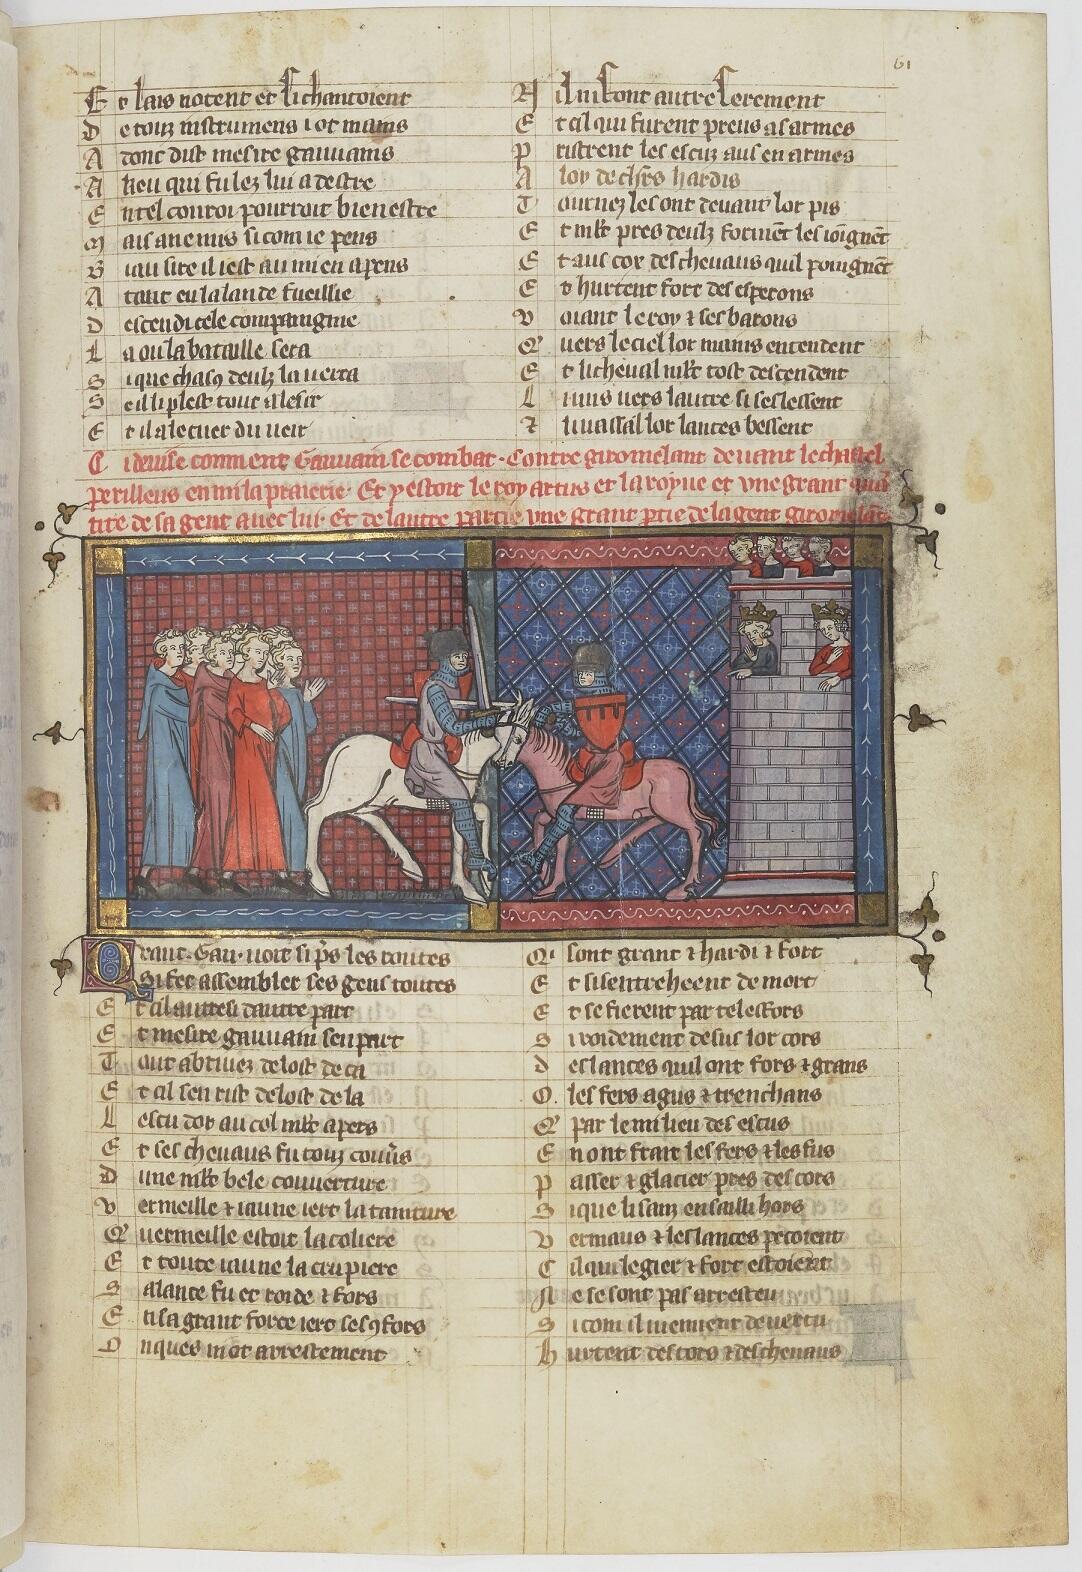 61
E t lais notent et si chantoient
D e touz instrumens i ot mains
A donc dist mesire gauuains
A keu qui fu lez lui a destre
E n tel conroi pourroit bien estre
M ais anemis si com ie pens
B iau sire il iest au mien apens
A tant en la lande fueillie
D escendi cele compaingnie
L a ou la bataille sera
S i que chascun deulz la uerra
S e il li plest tout a lesir
E t il a le cuer du ueir
A il ni font autre serement
E t cil qui furent preus as armes
P ristrent les escuz aus enarmes
A loy de chrs hardis
T ournez les ont deuant lor pis
E t mlt pres deulz forment les ioignent
E t aus cox des cheuaus quil poignent
E t hurtent fort des esperons
V oiant le roy & ses barons
Q' uers le ciel lor mains entendent
E t li cheual mlt tost descendent
L i uns uers lautre si seslessent
& li uassal lor lances bessent
C i deuise comment Gauuain se combat contre giromelant deuant le chastel
perilleus enmi la praierie. Et y estoit le roy artus et la royne et vne grant quan
tite de sa gent auec lui. Et de lautre partie vne grant ptie de la gent giromelant
Q vant Gau. uoit si ps les routes
Si fet assembler ses gens toutes
E t cil autresi dautre part
E t mesire gauuain sen part
T out abriuez de lost de ca
E t cil sen rist de lost de la
L escu dor au col mlt apers
E t ses cheuaus fu touz couuers
D une mlt bele couuerture
V ermeille & iaune iert la tainture
Q' uermeille estoit la coliere
E t toute iaune la crupiere
S a lance fu et roide & fors
E n sa grant force iert ses 9fors
O nques ni ot arrestement
Q' sont grant & hardi & fort
E t si sentreheent de mort
E t se fierent par tel esfors
S i roidement de sus lor cors
D es lances quil ont fors & grans
O. les fers agus & trenchans
Q' par le milieu des escus
E n ont frait les fers & les fus
P asser & glacier pres des cors
S i que li sans en sailli hors
V ermaus & les lances pecoient
C il qui legier & fort estoient
N e se sont pas arresteu
S i com il uiennent de uertu
H urtent des cors & des cheuaus